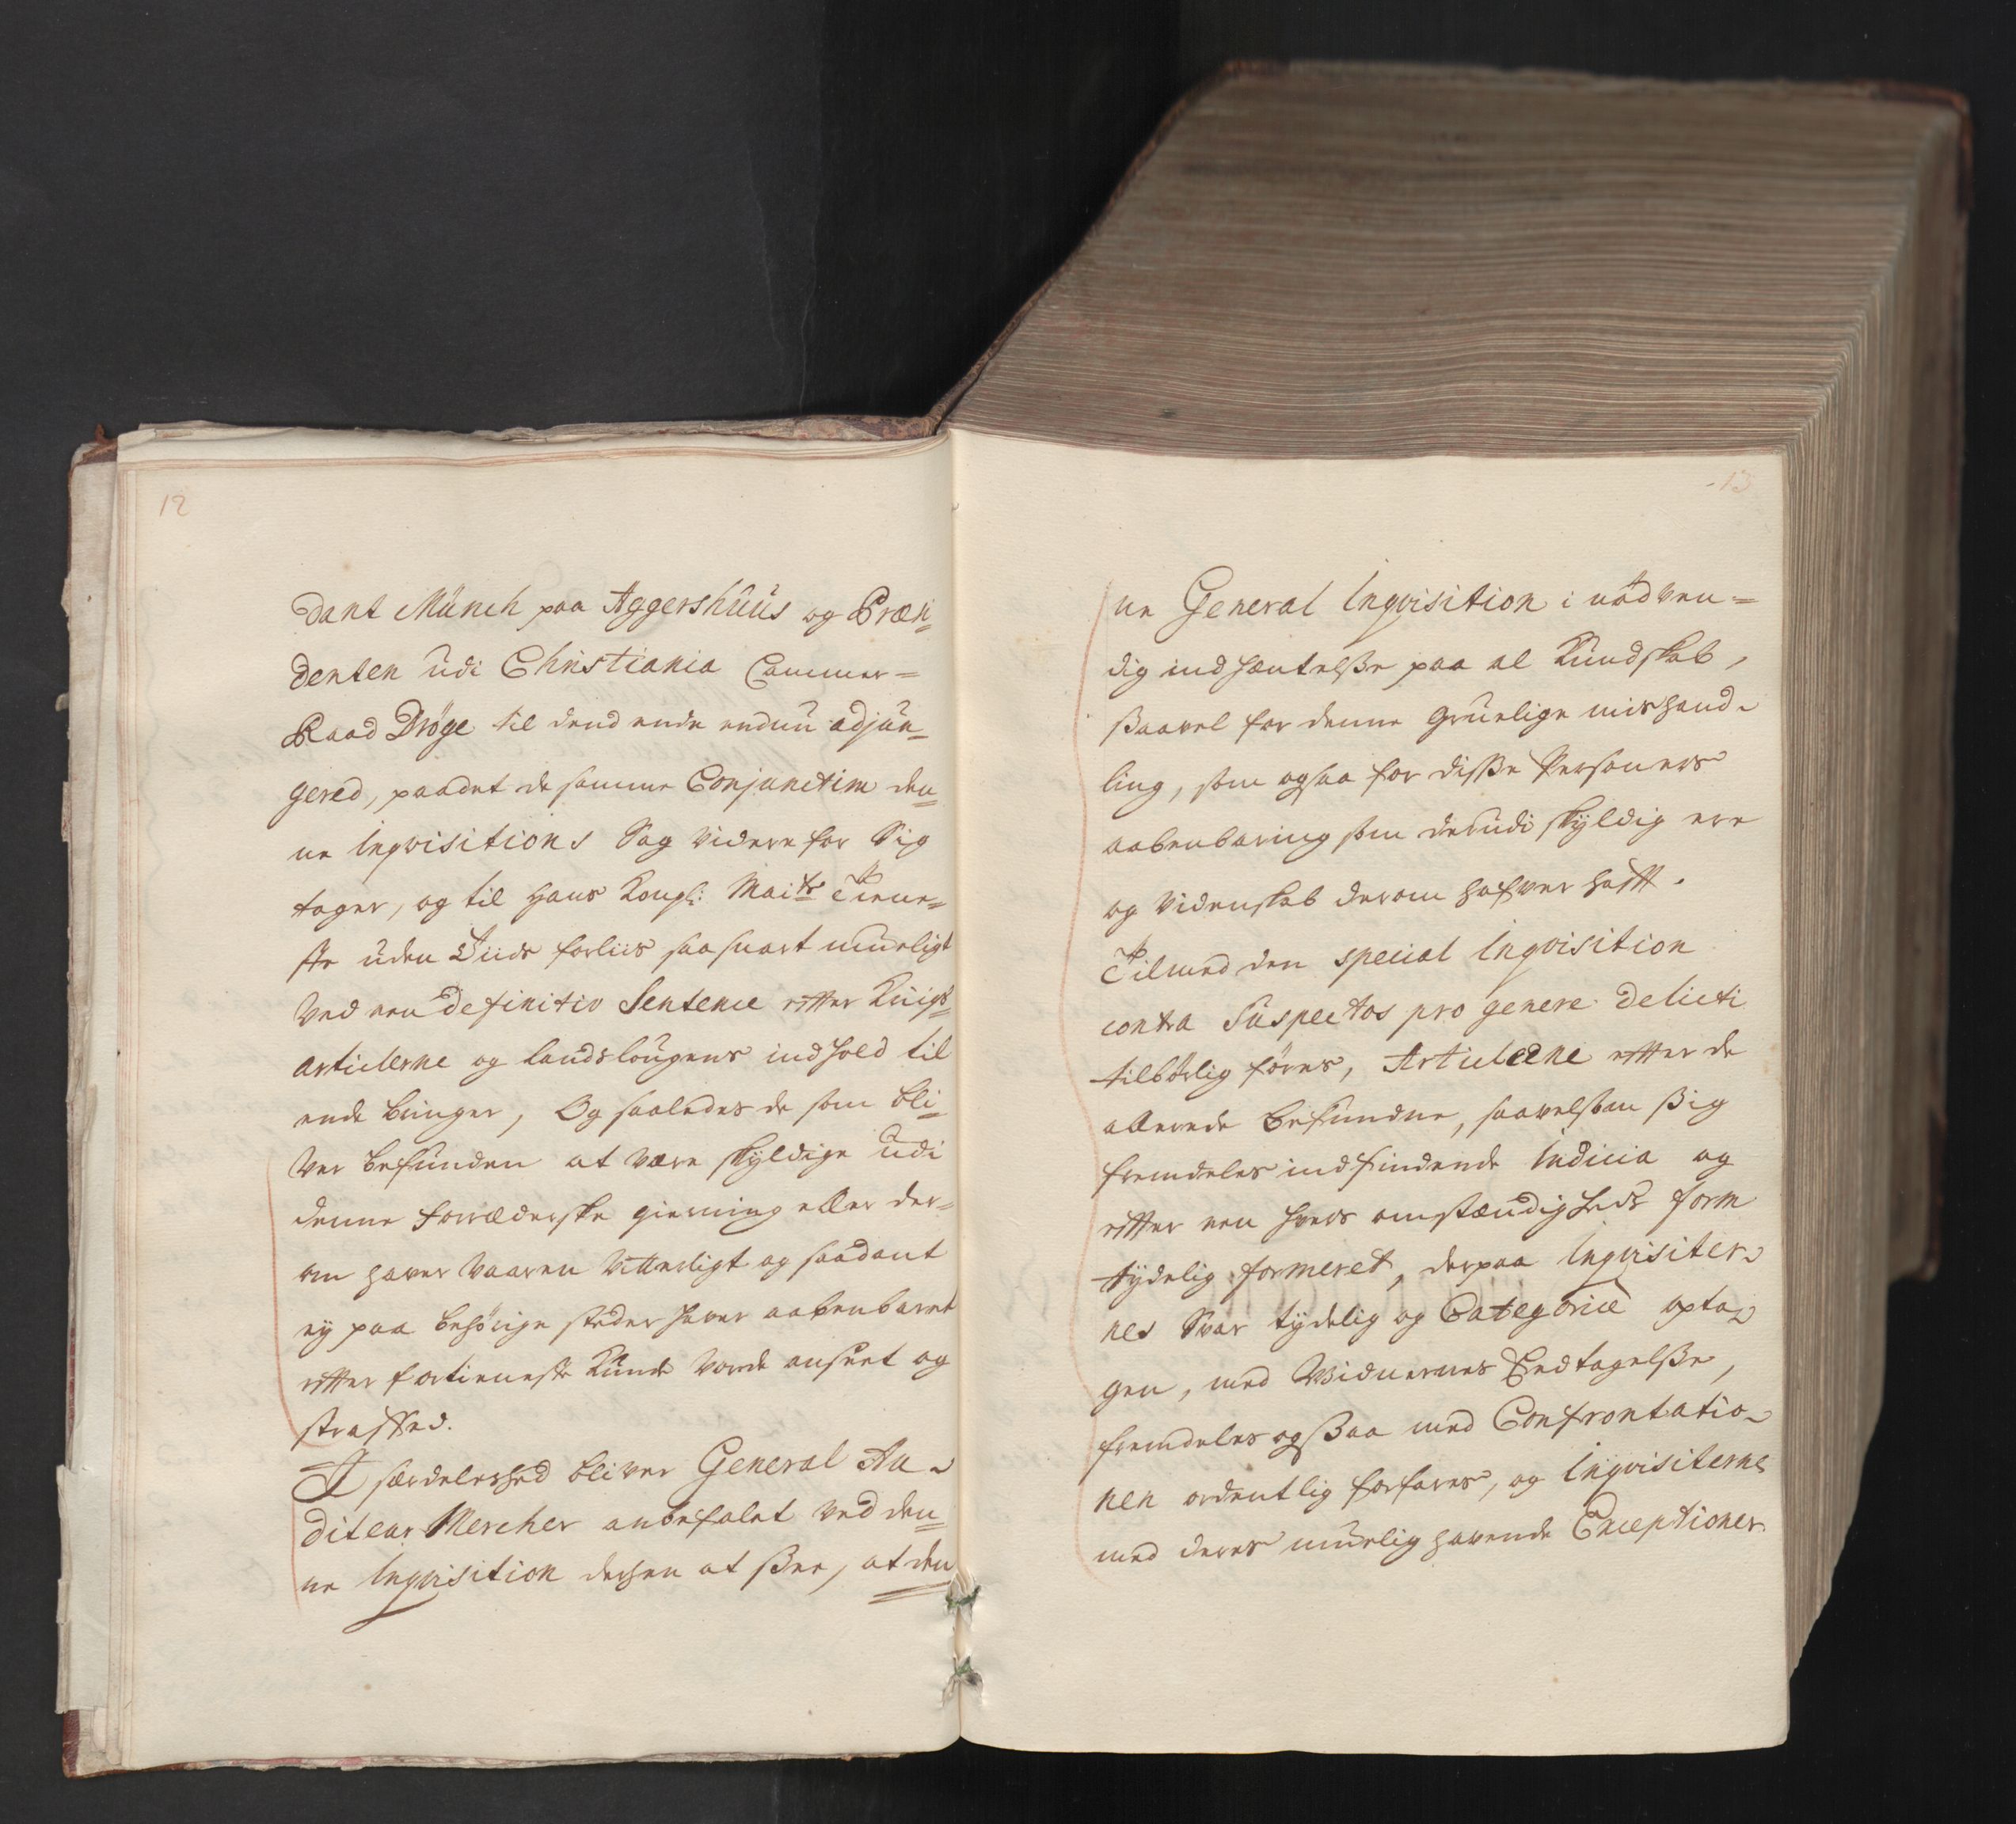 12
dant Münch paa Aggershüüs og Præsi-
denten üdi Christiania Cammer=
Raad Dröge til dend ende endnu adjün-
gered, paadet de samme Conjunctim den-
ne Inqvisitions Sag videre for Sig
tager, og til Hans Kongl: Maits Tiene-
ste uden Tiids forliis saasnart mueligt
Ved een definitiv Sentence efter Krigs-
articlerne og Landslougens indhold til
ende bringer, Og saaledes de som bli-
ver befunden at være skyldige udi
denne forræderske gierning eller der-
om haver Vaaren Vitterligt og saadant
ey paa behörige steder haver aabenbaret
efter fortieneste Kunde Vorde anseet og
straffed.
I særdeleshed bliver General Au-
diteur Mercker anbefalet ved den-
ne Inqvisition derhen at see, at den
13
ne General Inqvisition i nödven=
dig indhæntelse paa al Kundskab,
saavel for denne gruelige mishand-
ling, som ogsaa for disse Personers
aabenbaring som derudi skyldig ere
og Videnskab derom hafver hafft.
Tilmed den special Inqvisition
contra Suspectos pro genere delicti
tilbörlig föres, Articlerne efter de
allerede befundne, saavelsom sig
fremdeles indfindende Indicia og
efter een hvers omstændigheds form
tydelig formeret, derpaa Inqvisiter-
nes Svar tydelig og Categorice opta-
gen, med Vidnernes Eedtagelse,
fremdeles ogsaa med Confrontatio-
nen ordentlig forfares, og Inqvisiterne
med deres muelig havende Exceptioner